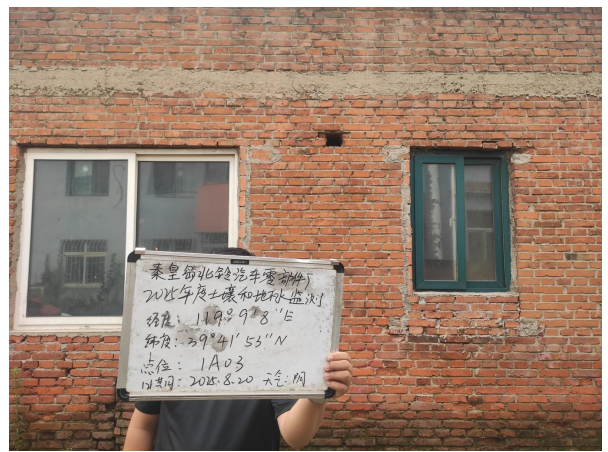 秦皇岛北铃汽车零部件厂
2025年度土壤和地下水监测
经度: 119°9′8″E
纬度: 39°41′53″N
点位: 1A03
时间: 2025.8.20 天气:阴